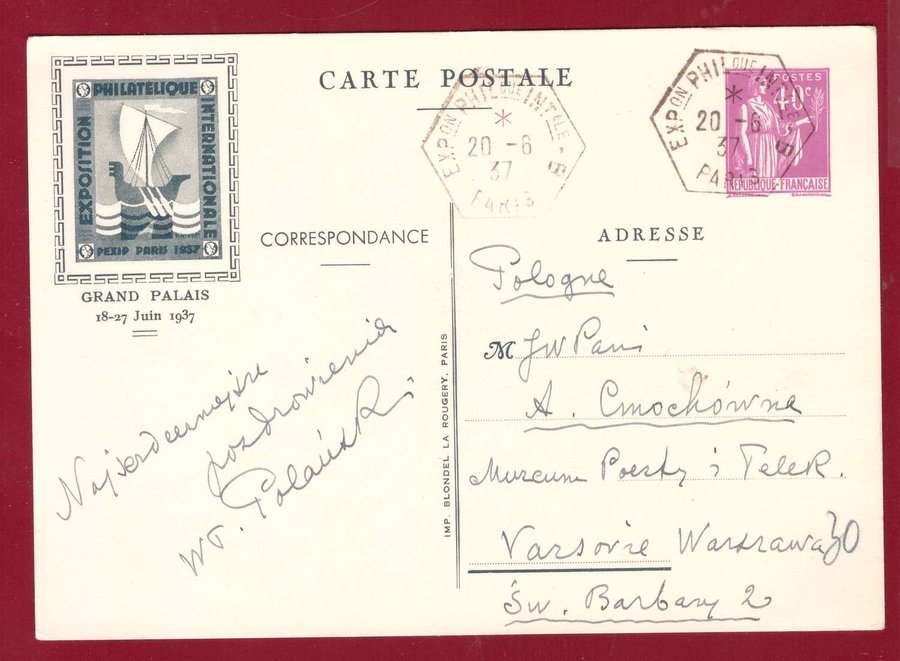 CARTE POSTALE
EXPOSITION
PHILATELIQUE
INTERNATIONALE
PEXIP PARIS 1937
GRAND PALAIS
18-27 Juin 1937
EXPON PHILQUE INTLE · 6
*
20 - 6
37
PARIS
EXPON PHILQUE INTLE · 6
*
20 - 6
37
PARIS
POSTES
40c
REPUBLIQUE-FRANÇAISE
CORRESPONDANCE
Najserdeczniejsze
pozdrowienia
Wł. Polański
IMP. BLONDEL LA ROUGERY, PARIS
ADRESSE
Pologne
M JW Pani
A. Cmochówna
Muzeum Poczty i Telek.
Varsovie Warszawa 30
Św. Barbary 2